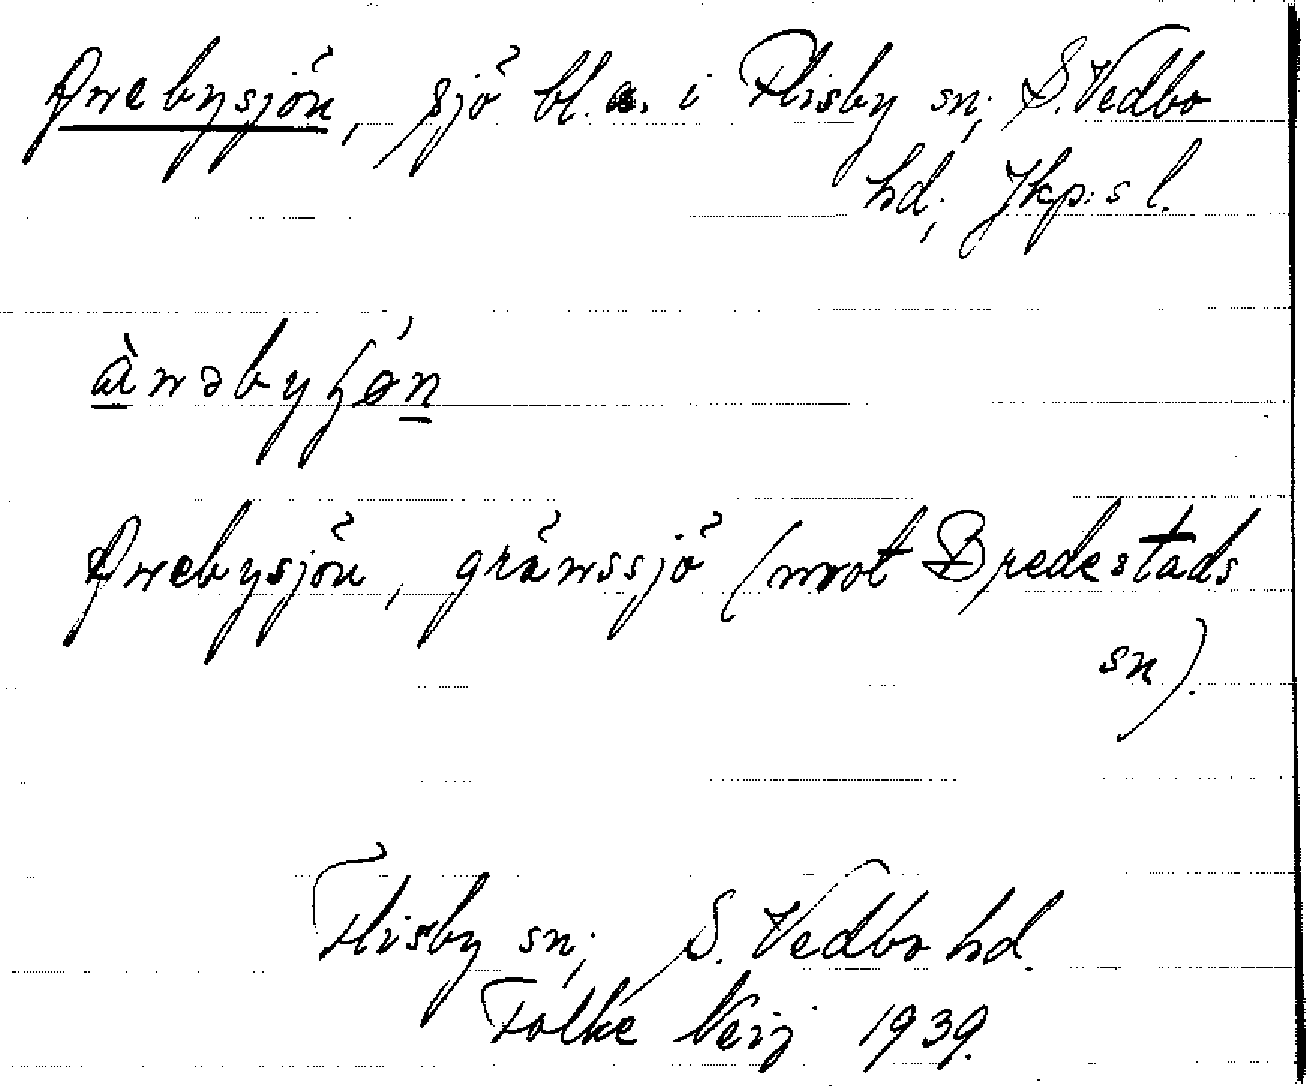 Anebysjön, sjö bl. a. i Flisby sn, S. Vedbo
hd, Jkp:s l.
Anebysjön, gränssjö (mot Bredestads
sn).
Flisby sn, S. Vedbo hd.
Folke Neij 1939.